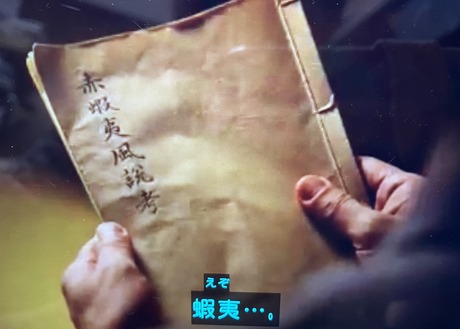 赤蝦夷風説考
えぞ
蝦夷…。